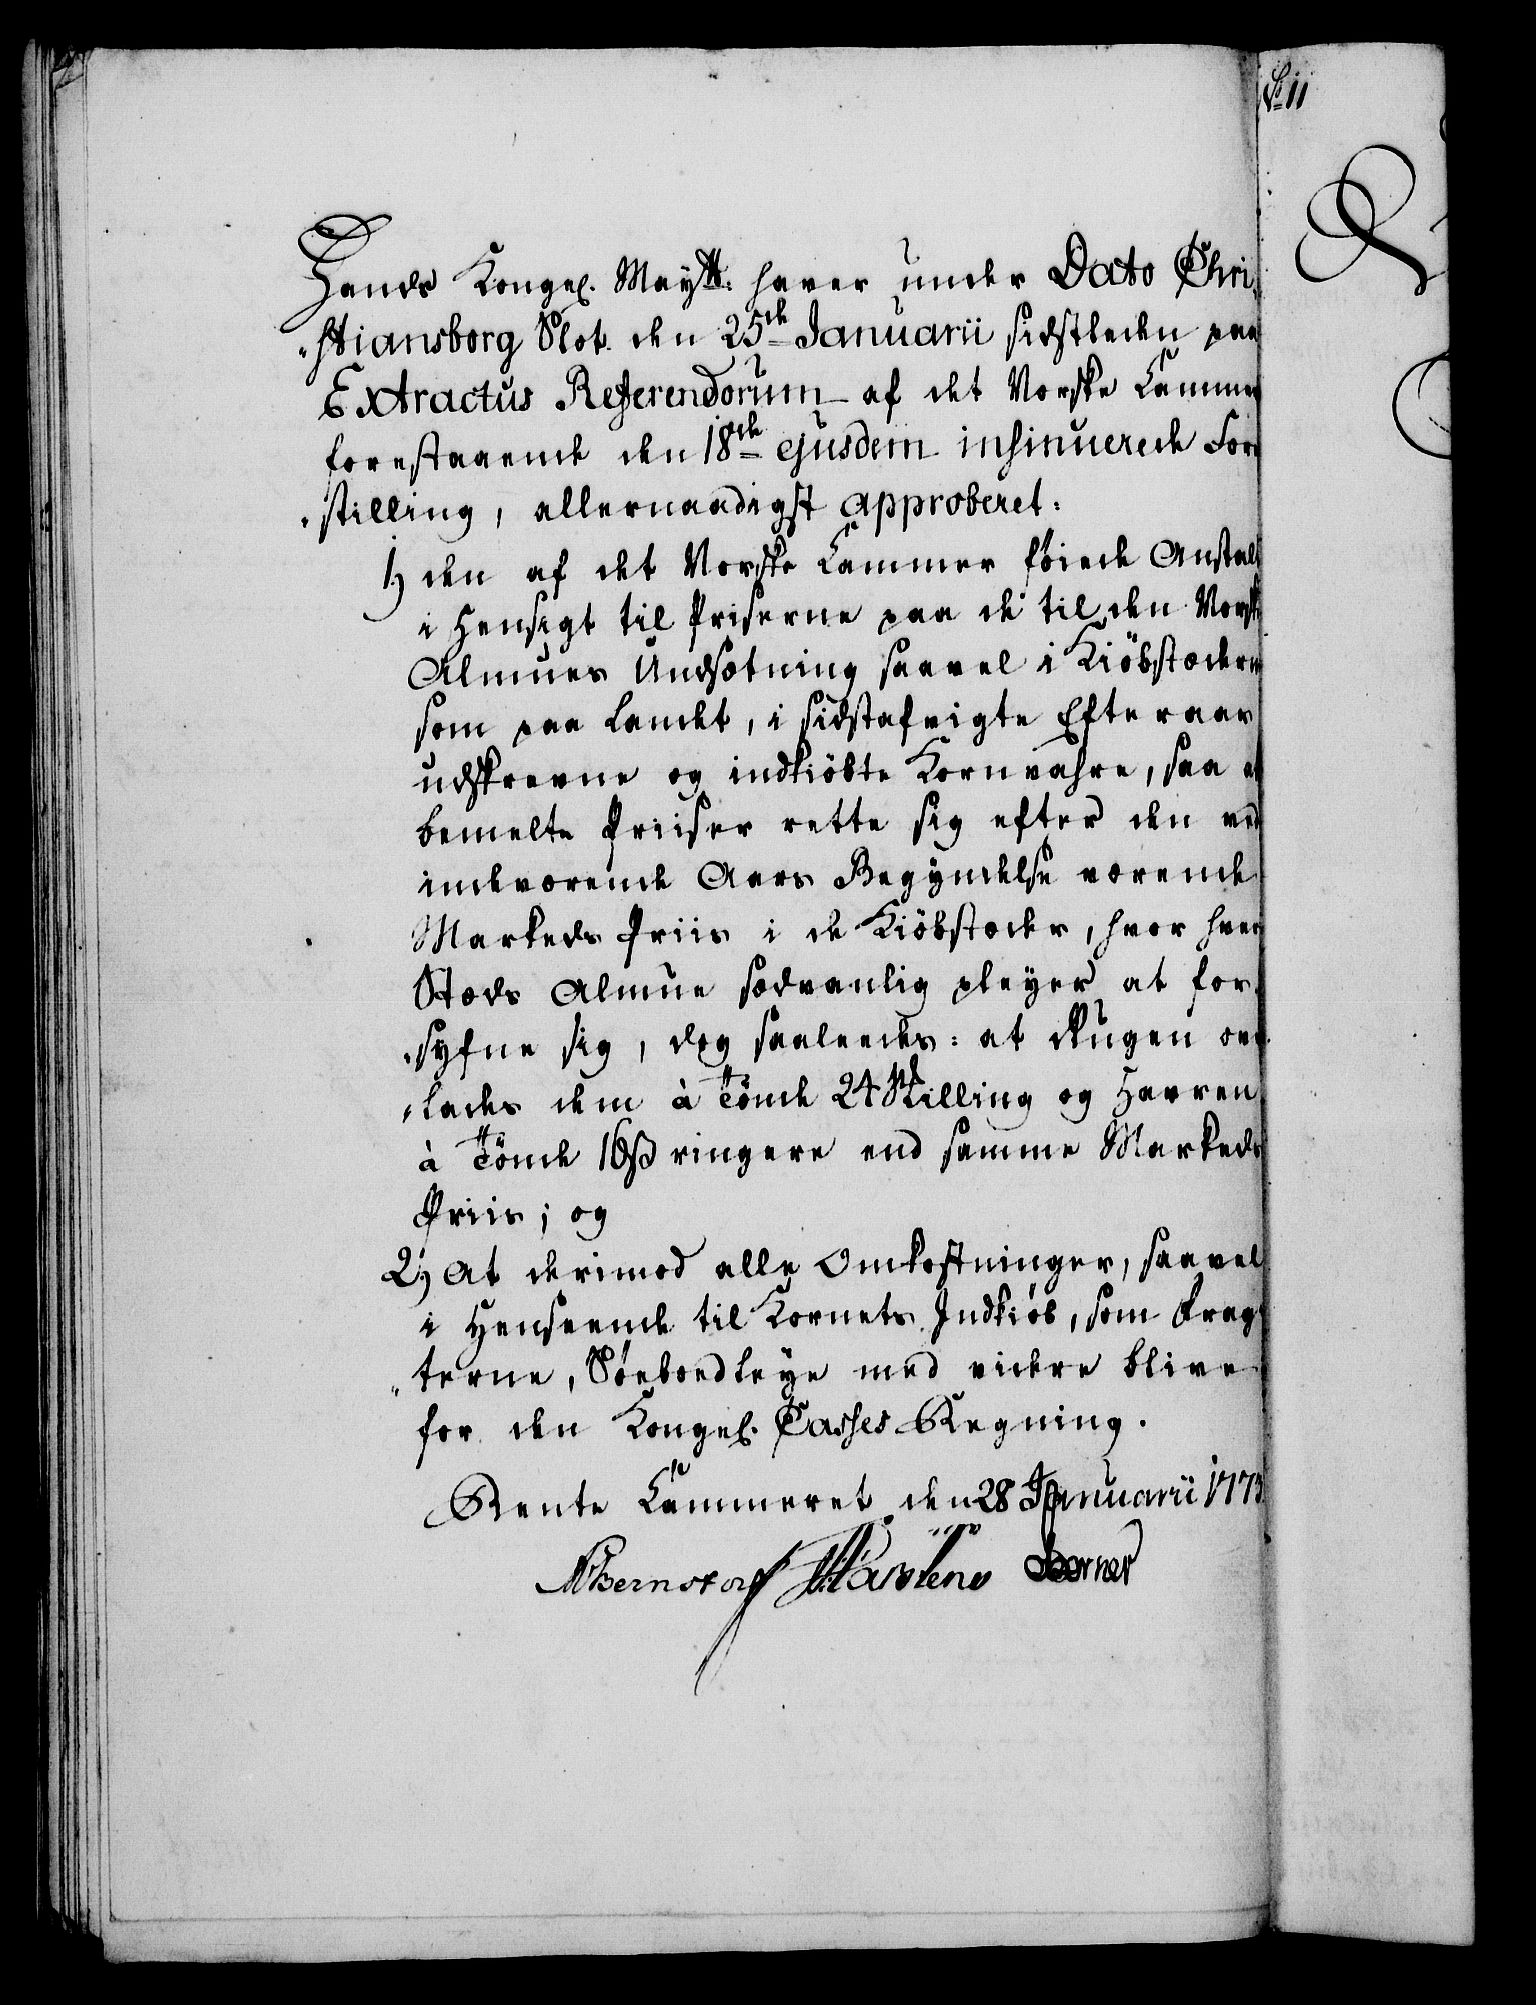 No 11
Hands Kongel. Maytt: haver under Dato Chri-
"stiansborg Slot den 25de Januarii sidstleden paa
Extractus Referendorum af det Norske Cammer
forestaaende den 18de ejusdem insinuerede Fore
"stilling, allernaadigst approberet:
1) den af det Norske Cammer føiede Anstalt
i Hensigt til Priserne paa de til den Norske
Almues Undsætning saavel i Kiöbstæderne
som paa Landet, i sidstafvigte Efteraar
udskrevne og indkiöbte Kornvahre, saa at
bemelte Priiser rette sig efter den ved
indeværende Aars Begyndelse værende
Markeds Priis i de Kiöbstæder, hvor hver
Stæds Almue sædvanlig pleyer at for-
"syfne sig, dog saaledes: at Rugen over
"lades dem à Tönde 24 Skilling og Havren
à Tönde 16 ß ringere end samme Markeds
Priis; og
2) At derimod alle Omkostninger, saavel
i Henseende til Kornets Indkiöb, som Frag
"terne, Söeboedleye med videre blive
for den Kongel. Casses Regning.
Rente Cammeret den 28 Januarii 1773
Bernstorff